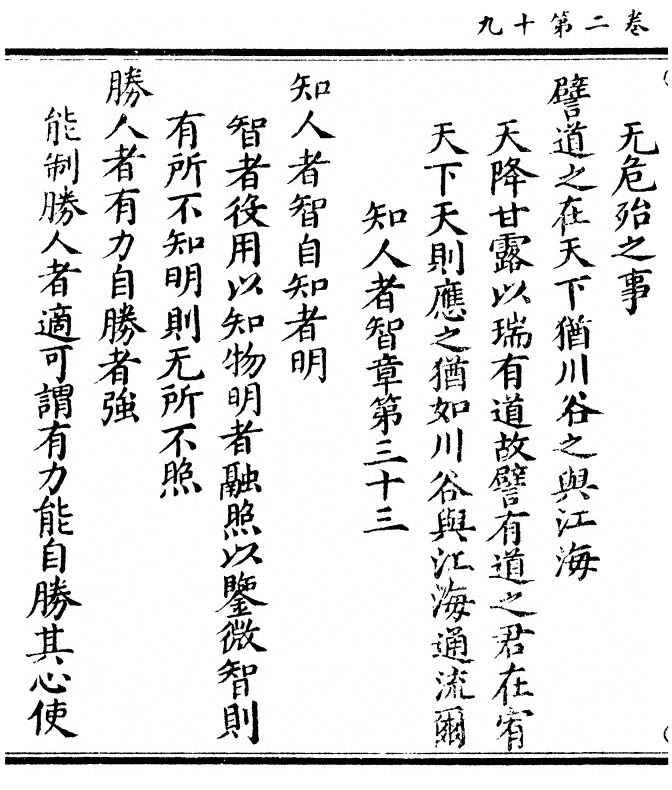 卷二第十九
无危殆之事
譬道之在天下猶川谷之與江海
天降甘露以瑞有道故譬有道之君在宥
天下天則應之猶如川谷與江海通流爾
知人者智章第三十三
知人者智自知者明
智者役用以知物明者融照以鑒微智則
有所不知明則无所不照
勝人者有力自勝者強
能制勝人者適可謂有力能自勝其心使